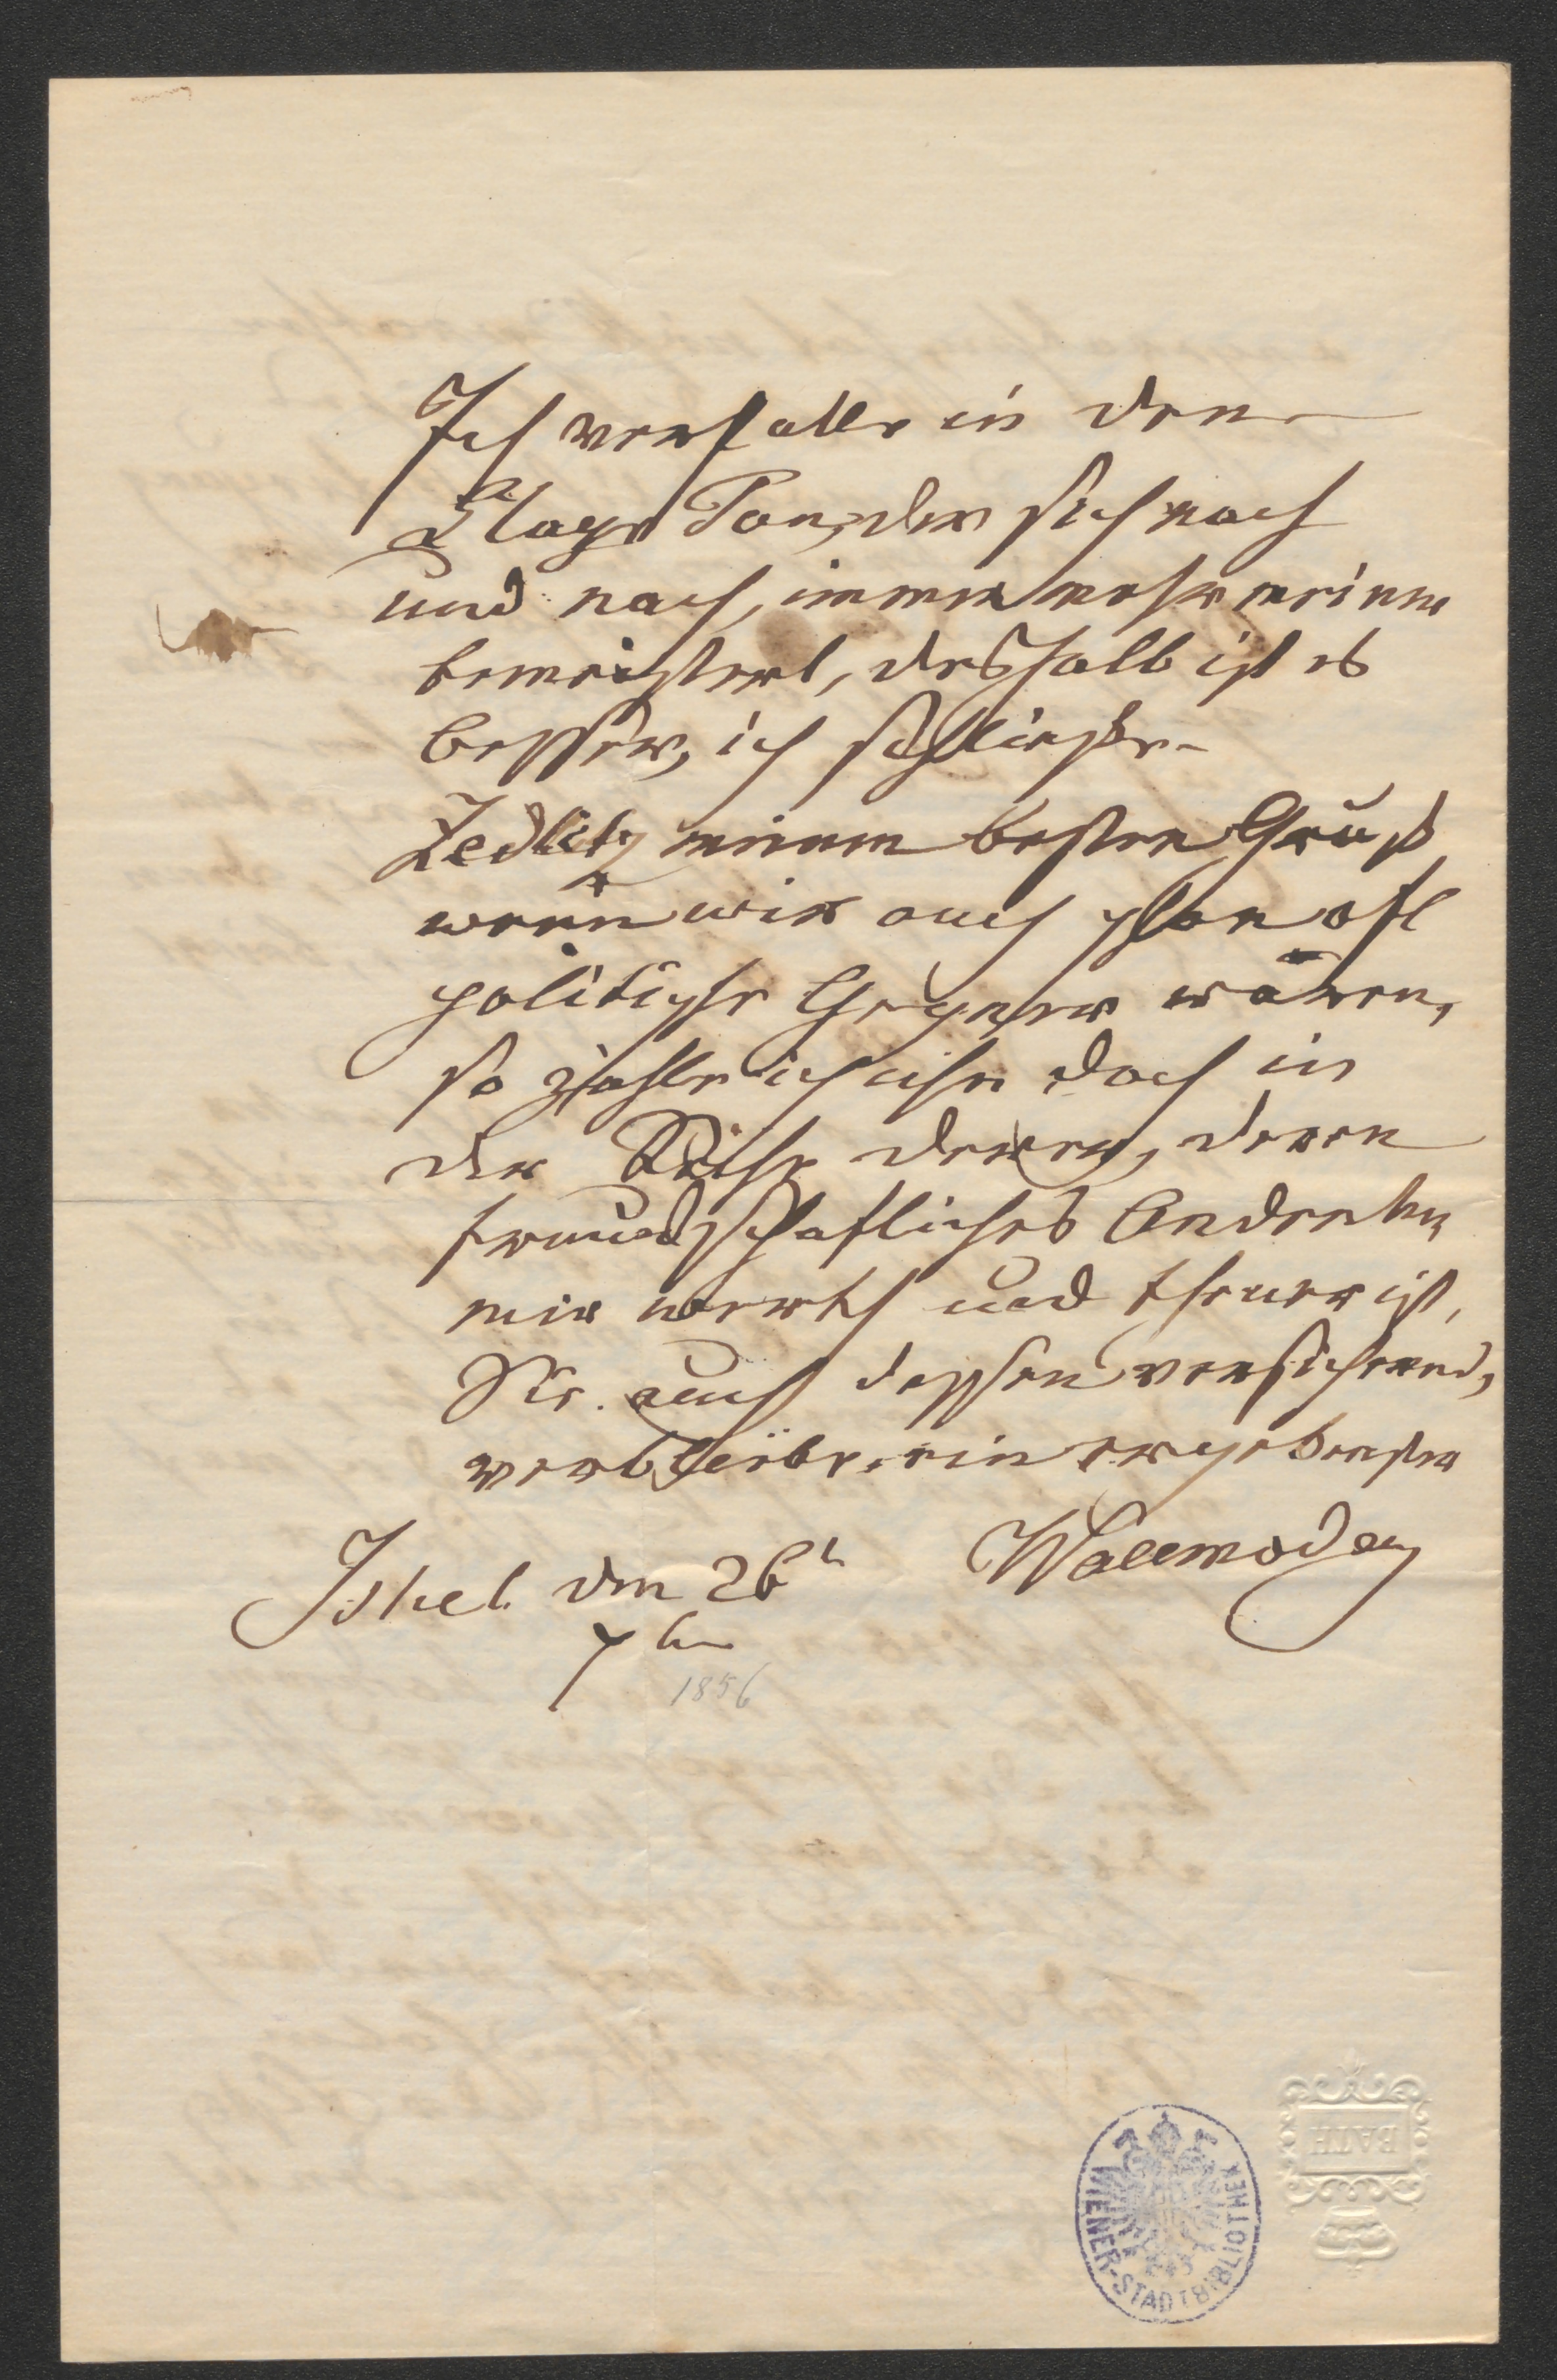 Ich verfalle in den
Klage Ton, der sich nach
und nach, immer mehr meiner
bemeistert, deshalb ist es
besser, ich schließe.
Zedlitz meinen besten Gruß
wenn wir auch schon oft
politische Gegner waren,
so zähle ich ihn doch in
der Reihe derer, deren
freundschaftliches Andenken
mir werth und theuer ist,
Sie auch dessen versichernd,
verbleibe, ein ergebenster
Ischel den 26t Wallmoden
7ber
1856
BATH
WIENER-STADTBIBLIOTHEK